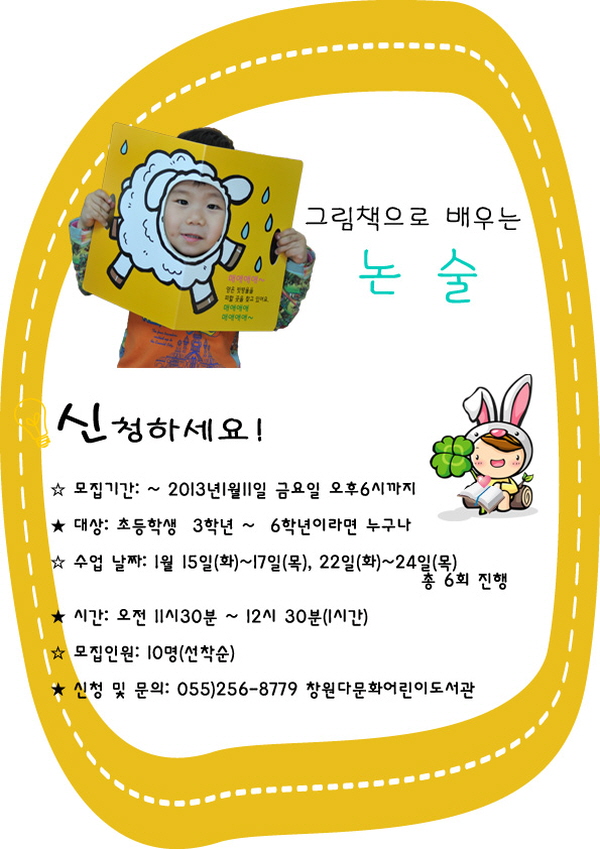 매애애애~
양은 빗방울을
피할 곳을 찾고 있어요.
매애애애
매애애애~
그림책으로 배우는
논 술
신청하세요!
☆ 모집기간: ~ 2013년1월11일 금요일 오후6시까지
★ 대상: 초등학생 3학년 ~ 6학년이라면 누구나
☆ 수업 날짜: 1월 15일(화)~17일(목), 22일(화)~24일(목)
총 6회 진행
★ 시간: 오전 11시30분 ~ 12시 30분(1시간)
☆ 모집인원: 10명(선착순)
★ 신청 및 문의: 055)256-8779 창원다문화어린이도서관